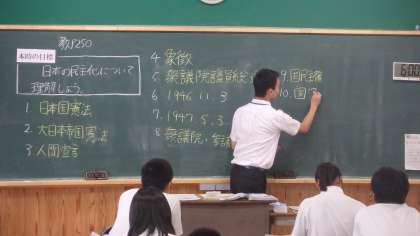 教P250
本時の目標
日本の民主化について
理解しよう。
1. 日本国憲法
2. 大日本帝国憲法
3. 人間宣言
4 象徴
5. 衆議院議員
6 1946 11. 3
7. 1947 5. 3
8 衆議院・参
9. 国民主権
10. 国